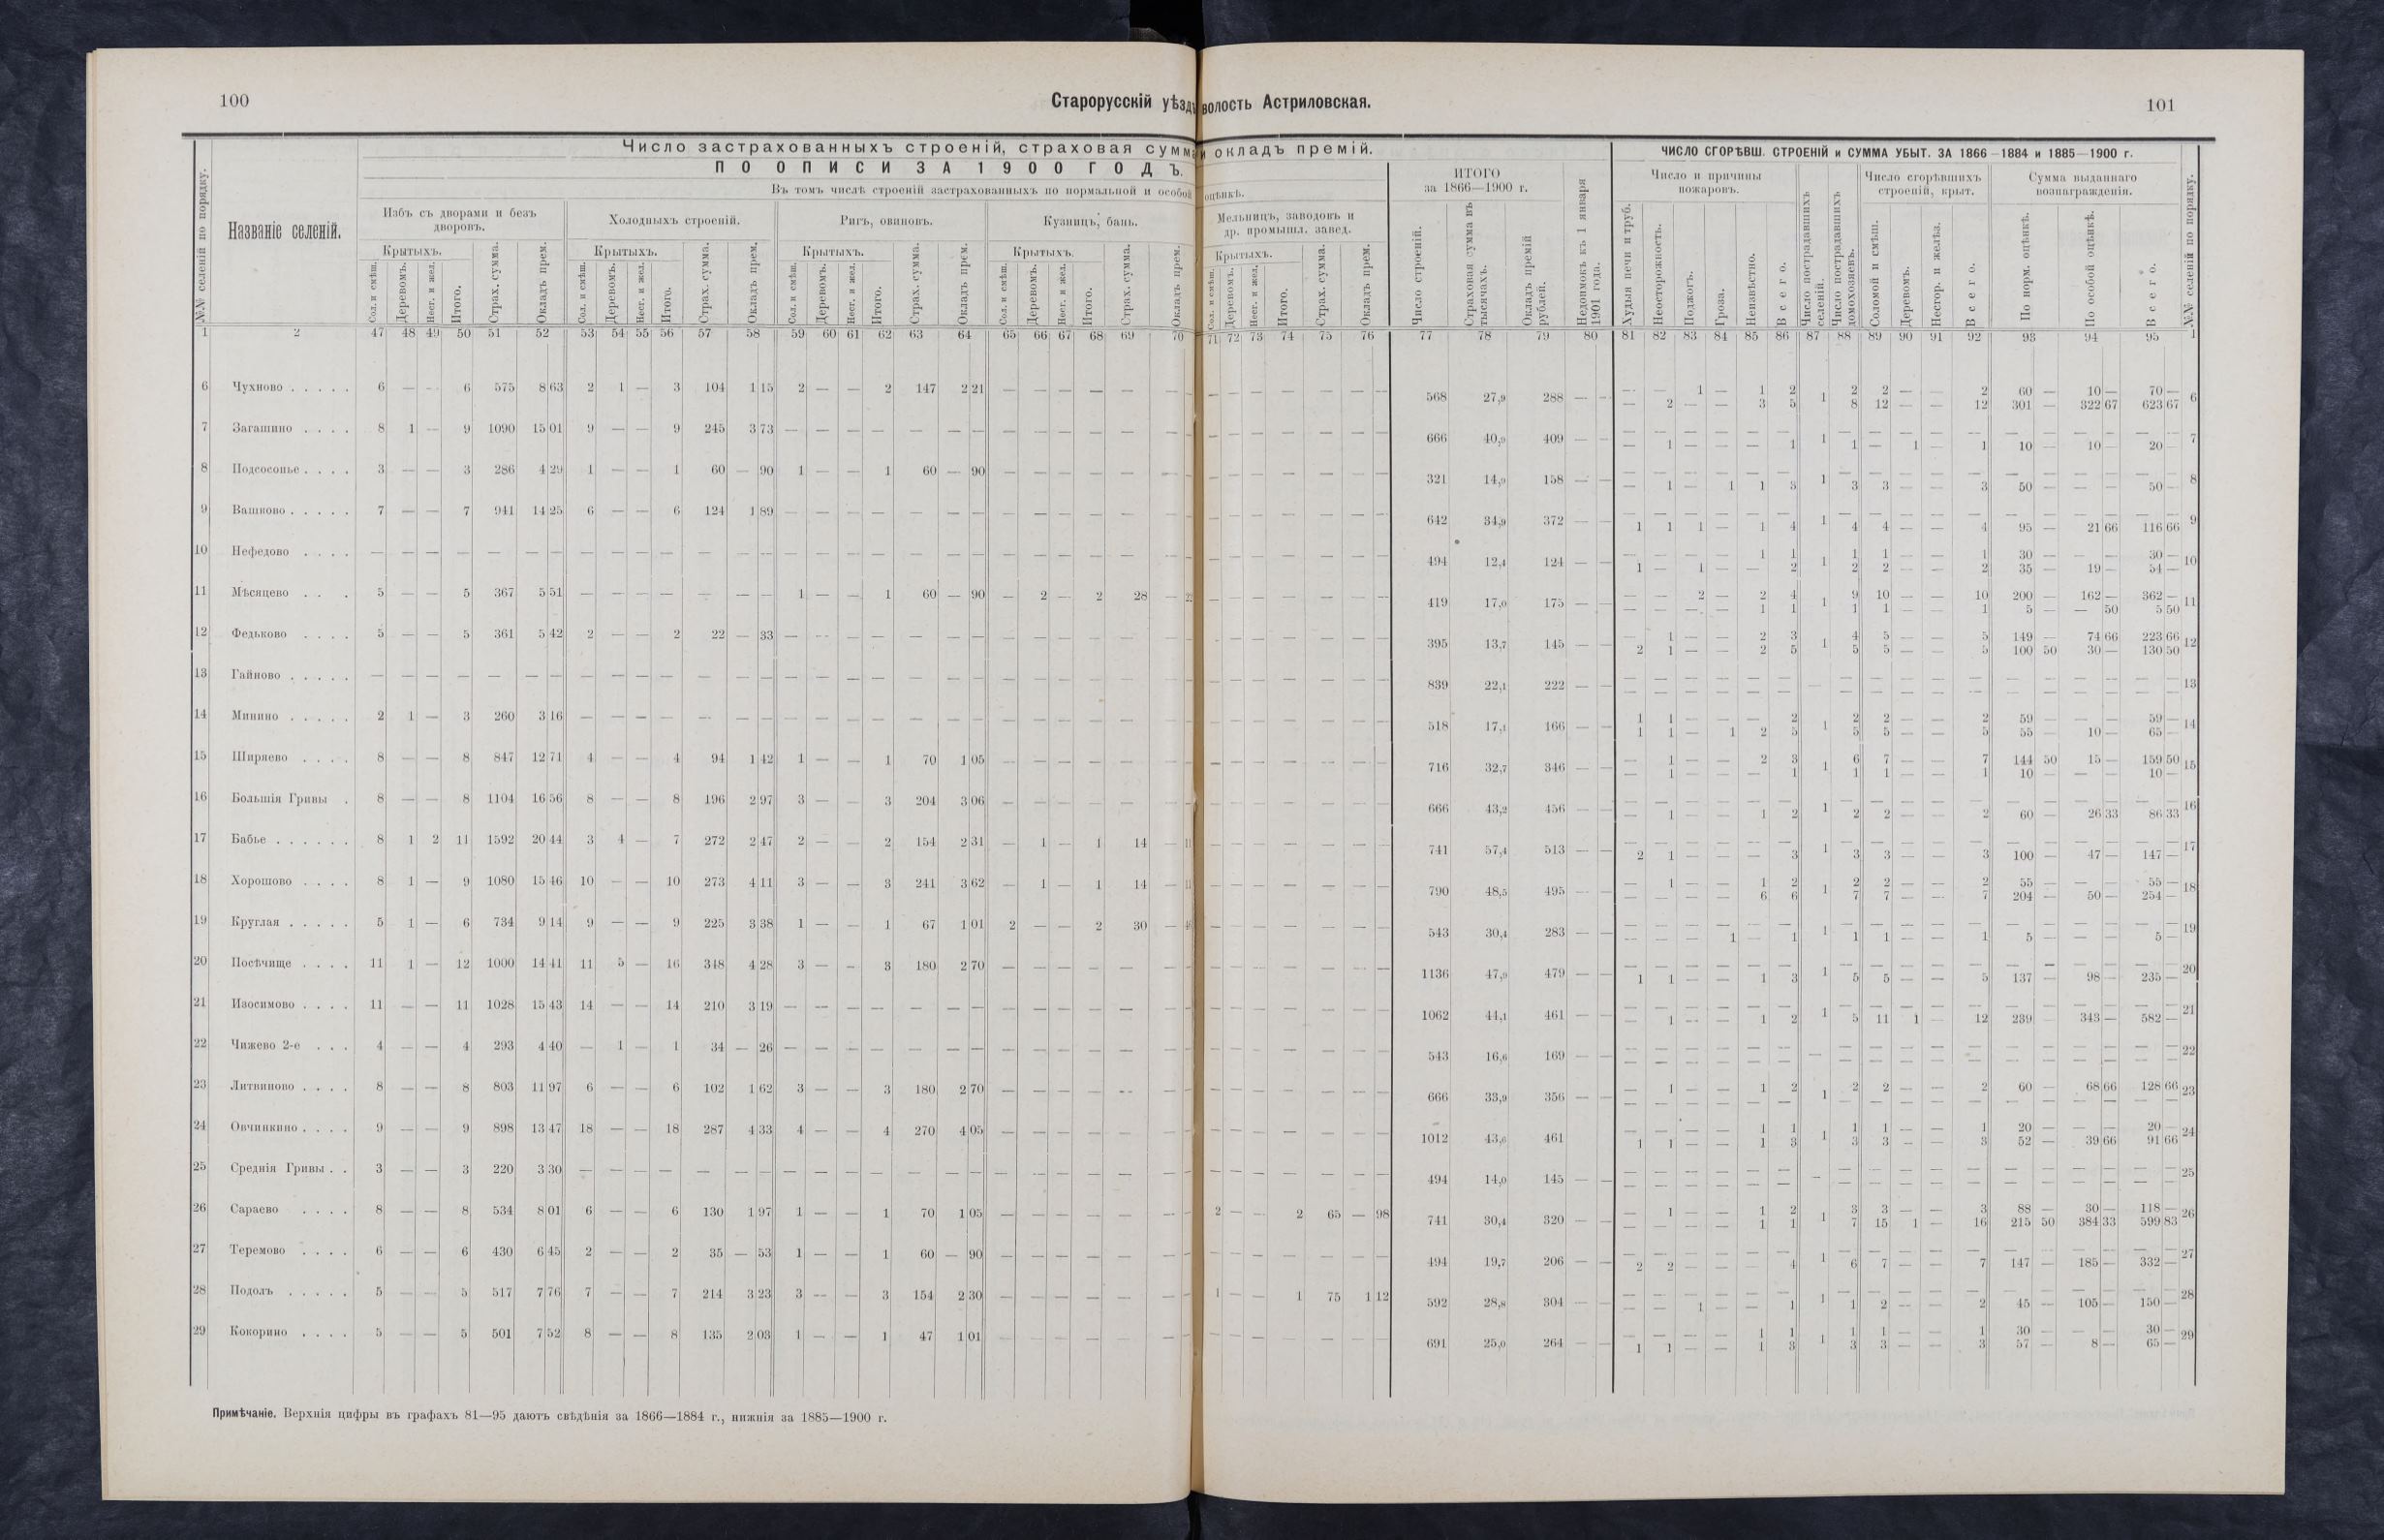 100
Старорусскій уѣздъ
волость Астриловская.
101
Число застрахованныхъ строеній, страховая сумма
и окладъ премій.
ПО ОПИСИ ЗА 1900 ГОДЪ.
Въ томъ числѣ строеній застрахованныхъ по нормальной и особой
оцѣнкѣ.
ИТОГО за 1866—1900 г.
ЧИСЛО СГОРѢВШ. СТРОЕНІЙ и СУММА УБЫТ. ЗА 1866—1884 и 1885—1900 г.
№№ селеній по порядку.
Названіе селеній.
Избъ съ дворами и безъ дворовъ.
Холодныхъ строеній.
Ригъ, овиновъ.
Кузницъ, бань.
Мельницъ, заводовъ и др. промышл. завед.
Число и причины пожаровъ.
Число сгорѣвшихъ строеній, крыт.
Сумма выданнаго вознагражденія.
Крытыхъ. Крытыхъ. Крытыхъ. Крытыхъ. Крытыхъ.
Сол. и смѣш. Деревомъ. Несг. и жел. Итого. Страх. сумма. Окладъ прем.
Сол. и смѣш. Деревомъ. Несг. и жел. Итого. Страх. сумма. Окладъ прем.
Сол. и смѣш. Деревомъ. Несг. и жел. Итого. Страх. сумма. Окладъ прем.
Сол. и смѣш. Деревомъ. Несг. и жел. Итого. Страх. сумма. Окладъ прем.
Сол. и смѣш. Деревомъ. Несг. и жел. Итого. Страх. сумма. Окладъ прем.
Число строеній. Страховая сумма въ тысячахъ. Окладъ премій рублей. Недоимокъ къ 1 января 1901 года.
Худыя печи и труб. Неосторожность. Поджогъ. Гроза. Неизвѣстно. Всего.
Число пострадавшихъ селеній. Число пострадавшихъ домохозяевъ.
Соломой и смѣш. Деревомъ. Несгор. и желѣз. Всего.
По норм. оцѣнкѣ. По особой оцѣнкѣ. Всего. №№ селеній по порядку.
1 2 47 48 49 50 51 52 53 54 55 56 57 58 59 60 61 62 63 64 65 66 67 68 69 70 71 72 73 74 75 76 77 78 79 80 81 82 83 84 85 86 87 88 89 90 91 92 93 94 95 1
6 Чухново . . . . . 6 — — 6 575 8 63 2 1 — 3 104 1 15 2 — — 2 147 2 21 — — — — — — — — — — — — 568 27,9 288 — —
— — 1 — 1 2 1 2 2 — — 2 60 — 10 — 70 — 6
— 2 — — 3 5 8 12 — — 12 301 — 322 67 623 67
7 Загашино . . . . 8 1 — 9 1090 15 01 9 — — 9 245 3 73 — — — — — — — — — — — — — — — — — — 666 40,9 409 — —
— — — — — — 1 — — — — — — — — 7
— 1 — — — 1 1 — 1 — 1 10 — 10 — 20 —
8 Подсосонье . . . . 3 — — 3 286 4 29 1 — — 1 60 — 90 1 — — 1 60 — 90 — — — — — — — — — — — — 321 14,9 158 — —
— — — — — — 1 — — — — — — — — 8
— 1 — 1 1 3 3 3 — — 3 50 — — — 50 —
9 Вашково . . . . . 7 — — 7 941 14 25 6 — — 6 124 1 89 — — — — — — — — — — — — — — — — — — 642 34,9 372 — —
— — — — — — 1 — — — — — — — — 9
1 1 1 — 1 4 4 4 — — 4 95 — 21 66 116 66
10 Нефедово . . . . — — — — — — — — — — — — — — — — — — — — — — — — — — — — — — 494 12,4 124 — —
— — — — 1 1 1 1 1 — — 1 30 — — — 30 — 10
1 — 1 — — 2 2 2 — — 2 35 — 19 — 54 —
11 Мѣсяцево . . . 5 — — 5 367 5 51 — — — — — — 1 — — 1 60 — 90 — 2 — 2 28 — — — — — — — 419 17,0 175 — —
— — 2 — 2 4 1 9 10 — — 10 200 — 162 — 362 — 11
— — — — 1 1 1 1 — — 1 5 — — 50 5 50
12 Федьково . . . . 5 — — 5 361 5 42 2 — — 2 22 — 33 — — — — — — — — — — — — — — — — — — 395 13,7 145 — —
— 1 — — 2 3 1 4 5 — — 5 149 — 74 66 223 66 12
2 1 — — 2 5 5 5 — — 5 100 50 30 — 130 50
13 Гайново . . . . . — — — — — — — — — — — — — — — — — — — — — — — — — — — — — — 839 22,1 222 — —
— — — — — — — — — — — — — — — 13
— — — — — — — — — — — — — —
14 Минино . . . . . 2 1 — 3 260 3 16 — — — — — — — — — — — — — — — — — — — — — — — — 518 17,1 166 — —
1 1 — — — 2 1 2 2 — — 2 59 — — — 59 — 14
1 1 — 1 2 5 5 5 — — 5 55 — 10 — 65 —
15 Ширяево . . . . 8 — — 8 847 12 71 4 — — 4 94 1 42 1 — — 1 70 1 05 — — — — — — — — — — — — 716 32,7 346 — —
— 1 — — 2 3 1 6 7 — — 7 144 50 15 — 159 50 15
— 1 — — — 1 1 1 — — 1 10 — — — 10 —
16 Большія Гривы . 8 — — 8 1104 16 56 8 — — 8 196 2 97 3 — — 3 204 3 06 — — — — — — — — — — — — 666 43,2 456 — —
— — — — — — 1 — — — — — — — — 16
— 1 — — 1 2 2 2 — — 2 60 — 26 33 86 33
17 Бабье . . . . . . 8 1 2 11 1592 20 44 3 4 — 7 272 2 47 2 — — 2 154 2 31 — 1 — 1 14 — — — — — — — 741 57,4 513 — —
— — — — — — 1 — — — — — — — — 17
2 1 — — — 3 3 3 — — 3 100 — 47 — 147 —
18 Хорошово . . . . 8 1 — 9 1080 15 46 10 — — 10 273 4 11 3 — — 3 241 3 62 — 1 — 1 14 — — — — — — — 790 48,5 495 — —
— 1 — — 1 2 1 2 2 — — 2 55 — — — 55 — 18
— — — — 6 6 7 7 — — 7 204 — 50 — 254 —
19 Круглая . . . . . 5 1 — 6 734 9 14 9 — — 9 225 3 38 1 — — 1 67 1 01 2 — — 2 30 — — — — — — — 543 30,4 283 — —
— — — — — — 1 — — — — — — — — 19
— — — 1 — 1 1 1 — — 1 5 — — — 5 —
20 Посѣчище . . . . 11 1 — 12 1000 14 41 11 5 — 16 348 4 28 3 — — 3 180 2 70 — — — — — — — — — — — — 1136 47,9 479 — —
— — — — — — 1 — — — — — — — — 20
1 1 — — 1 3 5 5 — — 5 137 — 98 — 235 —
21 Изосимово . . . . 11 — — 11 1028 15 43 14 — — 14 210 3 19 — — — — — — — — — — — — — — — — — — 1062 44,1 461 — —
— — — — — — 1 — — — — — — — — 21
— 1 — — 1 2 5 11 1 — 12 239 — 343 — 582 —
22 Чижево 2-е . . . 4 — — 4 293 4 40 — 1 — 1 34 — 26 — — — — — — — — — — — — — — — — — — 543 16,6 169 — —
— — — — — — — — — — — — — — — 22
— — — — — — — — — — — — — —
23 Литвиново . . . . 8 — — 8 803 11 97 6 — — 6 102 1 62 3 — — 3 180 2 70 — — — — — — — — — — — — 666 33,9 356 — —
— 1 — — 1 2 1 2 2 — — 2 60 — 68 66 128 66 23
— — — — — — — — — — — — — —
24 Овчинкино . . . . 9 — — 9 898 13 47 18 — — 18 287 4 33 4 — — 4 270 4 05 — — — — — — — — — — — — 1012 43,6 461 — —
— — — — 1 1 1 1 1 — — 1 20 — — — 20 — 24
1 1 — — 1 3 3 3 — — 3 52 — 39 66 91 66
25 Среднія Гривы . . 3 — — 3 220 3 30 — — — — — — — — — — — — — — — — — — — — — — — — 494 14,0 145 — —
— — — — — — — — — — — — — — — 25
— — — — — — — — — — — — — —
26 Сараево . . . . 8 — — 8 534 8 01 6 — — 6 130 1 97 1 — — 1 70 1 05 — — — — — — 2 — — 2 65 — 98 741 30,4 320 — —
— 1 — — 1 2 1 3 3 — — 3 88 — 30 — 118 — 26
— — — — 1 1 7 15 1 — 16 215 50 384 33 599 83
27 Теремово . . . . 6 — — 6 430 6 45 2 — — 2 35 — 53 1 — — 1 60 — 90 — — — — — — — — — — — — 494 19,7 206 — —
— — — — — — 1 — — — — — — — — 27
2 2 — — — 4 6 7 — — 7 147 — 185 — 332 —
28 Подолъ . . . . . 5 — — 5 517 7 76 7 — — 7 214 3 23 3 — — 3 154 2 30 — — — — — — 1 — — 1 75 1 12 592 28,8 304 — —
— — — — — — 1 — — — — — — — — 28
— — 1 — — 1 1 2 — — 2 45 — 105 — 150 —
29 Кокорино . . . . 5 — — 5 501 7 52 8 — — 8 135 2 03 1 — — 1 47 1 01 — — — — — — — — — — — — 691 25,0 264 — —
— — — — 1 1 1 1 1 — — 1 30 — — — 30 — 29
1 1 — — 1 3 3 3 — — 3 57 — 8 — 65 —
Примѣчаніе. Верхнія цифры въ графахъ 81—95 даютъ свѣдѣнія за 1866—1884 г., нижнія за 1885—1900 г.